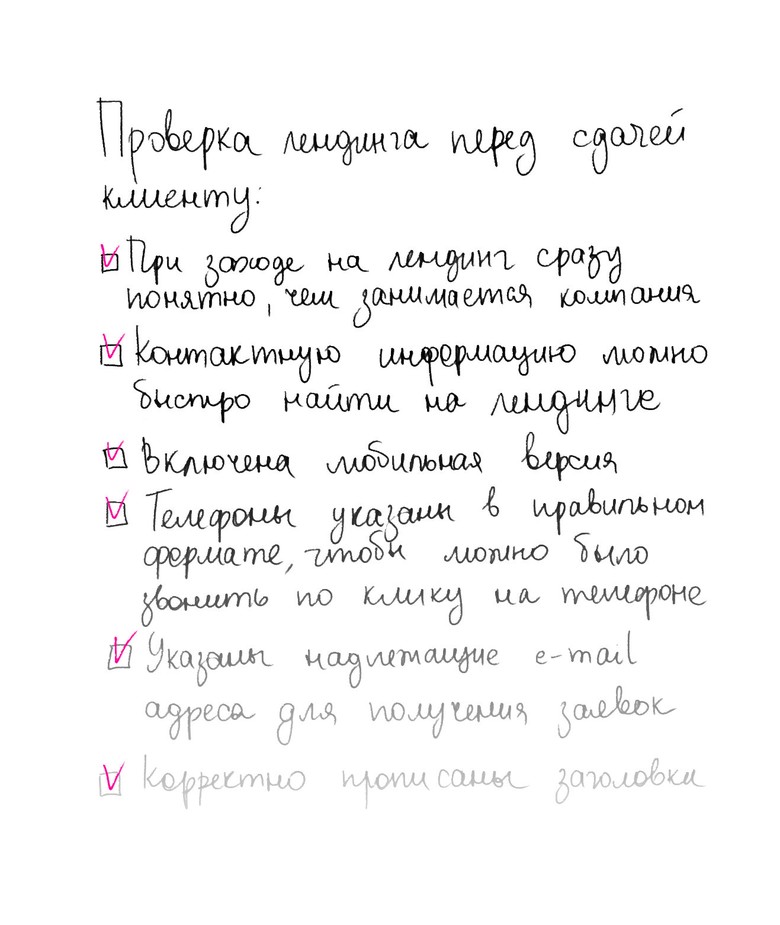 Проверка лендинга перед сдачей
клиенту:
При заходе на лендинг сразу
понятно, чем занимается компания
Контактную информацию можно
быстро найти на лендинге
Включена мобильная версия
Телефоны указаны в правильном
формате, чтобы можно было
звонить по клику на телефоне
Указаны надлежащие e-mail
адреса для получения заявок
Корректно прописаны заголовки